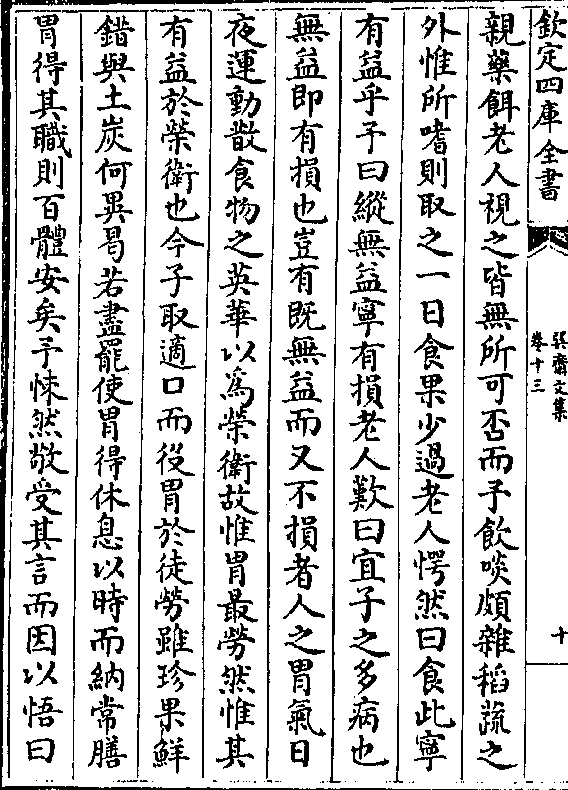 欽定四庫全書
巽齋文集
卷十三
十
親藥餌老人視之皆無所可否而予飲啖頗雜稻蔬之
外惟所嗜則取之一日食果少過老人愕然曰食此寧
有益乎予曰縱無益寧有損老人歎曰宜子之多病也
無益即有損也豈有既無益而又不損者人之胃氣日
夜運動散食物之英華以為榮衛故惟胃最勞然惟其
有益於榮衛也今子取適口而役胃於徒勞雖珍果鮮
錯與土炭何異曷若盡罷使胃得休息以時而納常膳
胃得其職則百體安矣予悚然敬受其言而因以悟曰